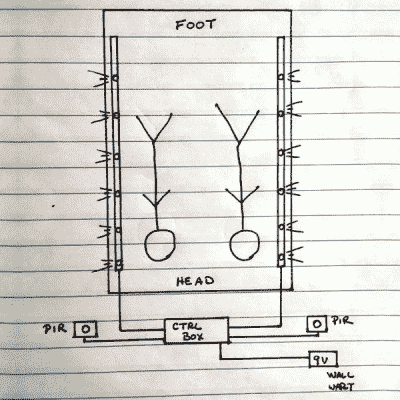 FOOT
HEAD
PIR
CTRL
BOX
PIR
9V
WALL
WART